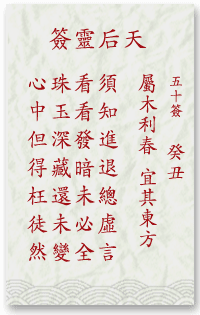 天后靈簽
五十簽 癸丑
屬木利春 宜其東方
須知進退總虛言
看看發暗未必全
珠玉深藏還未變
心中但得枉徒然